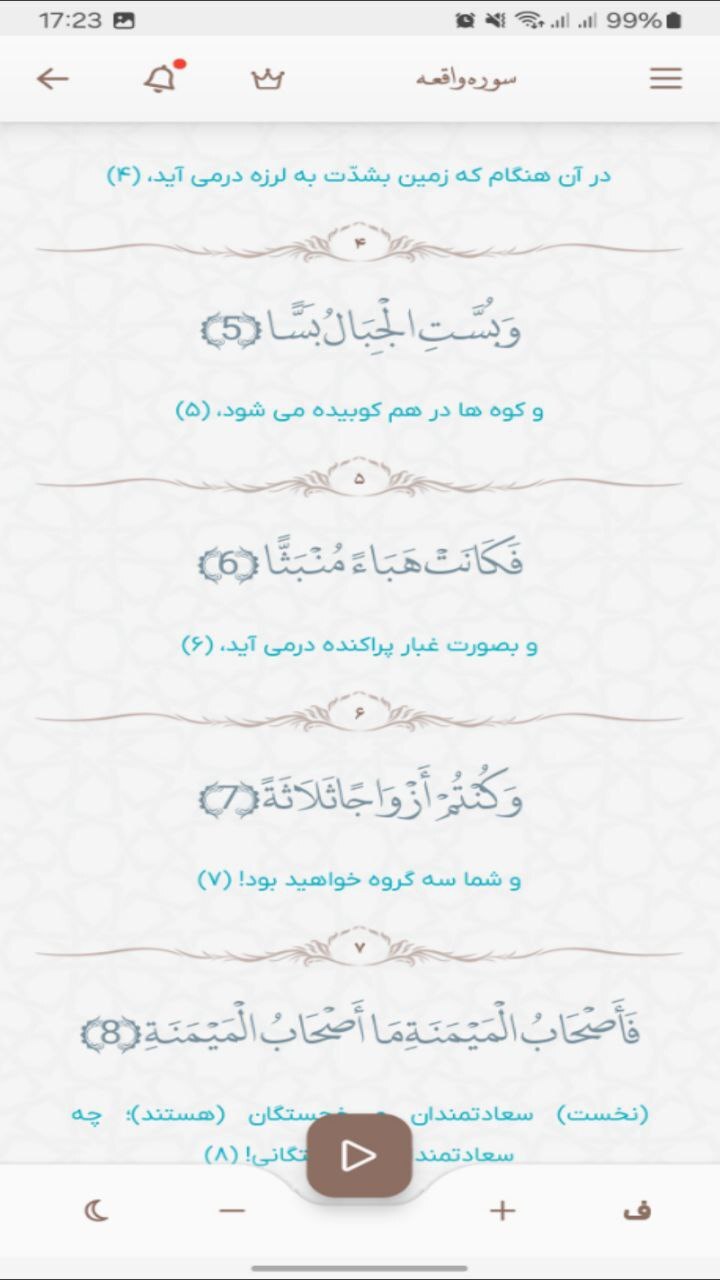 17:23 99%
سوره واقعه
در آن هنگام که زمین بشدّت به لرزه درمی آید، (۴)
۴
وَبُسَّتِ الْجِبَالُ بَسًّا ﴿5﴾
و کوه ها در هم کوبیده می شود، (۵)
۵
فَكَانَتْ هَبَاءً مُنْبَثًّا ﴿6﴾
و بصورت غبار پراکنده درمی آید، (۶)
۶
وَكُنْتُمْ أَزْوَاجًا ثَلَاثَةً ﴿7﴾
و شما سه گروه خواهید بود! (۷)
۷
فَأَصْحَابُ الْمَيْمَنَةِ مَا أَصْحَابُ الْمَيْمَنَةِ ﴿8﴾
(نخست) سعادتمندان و خجستگان (هستند)؛ چه
سعادتمند (۸)
ف + −